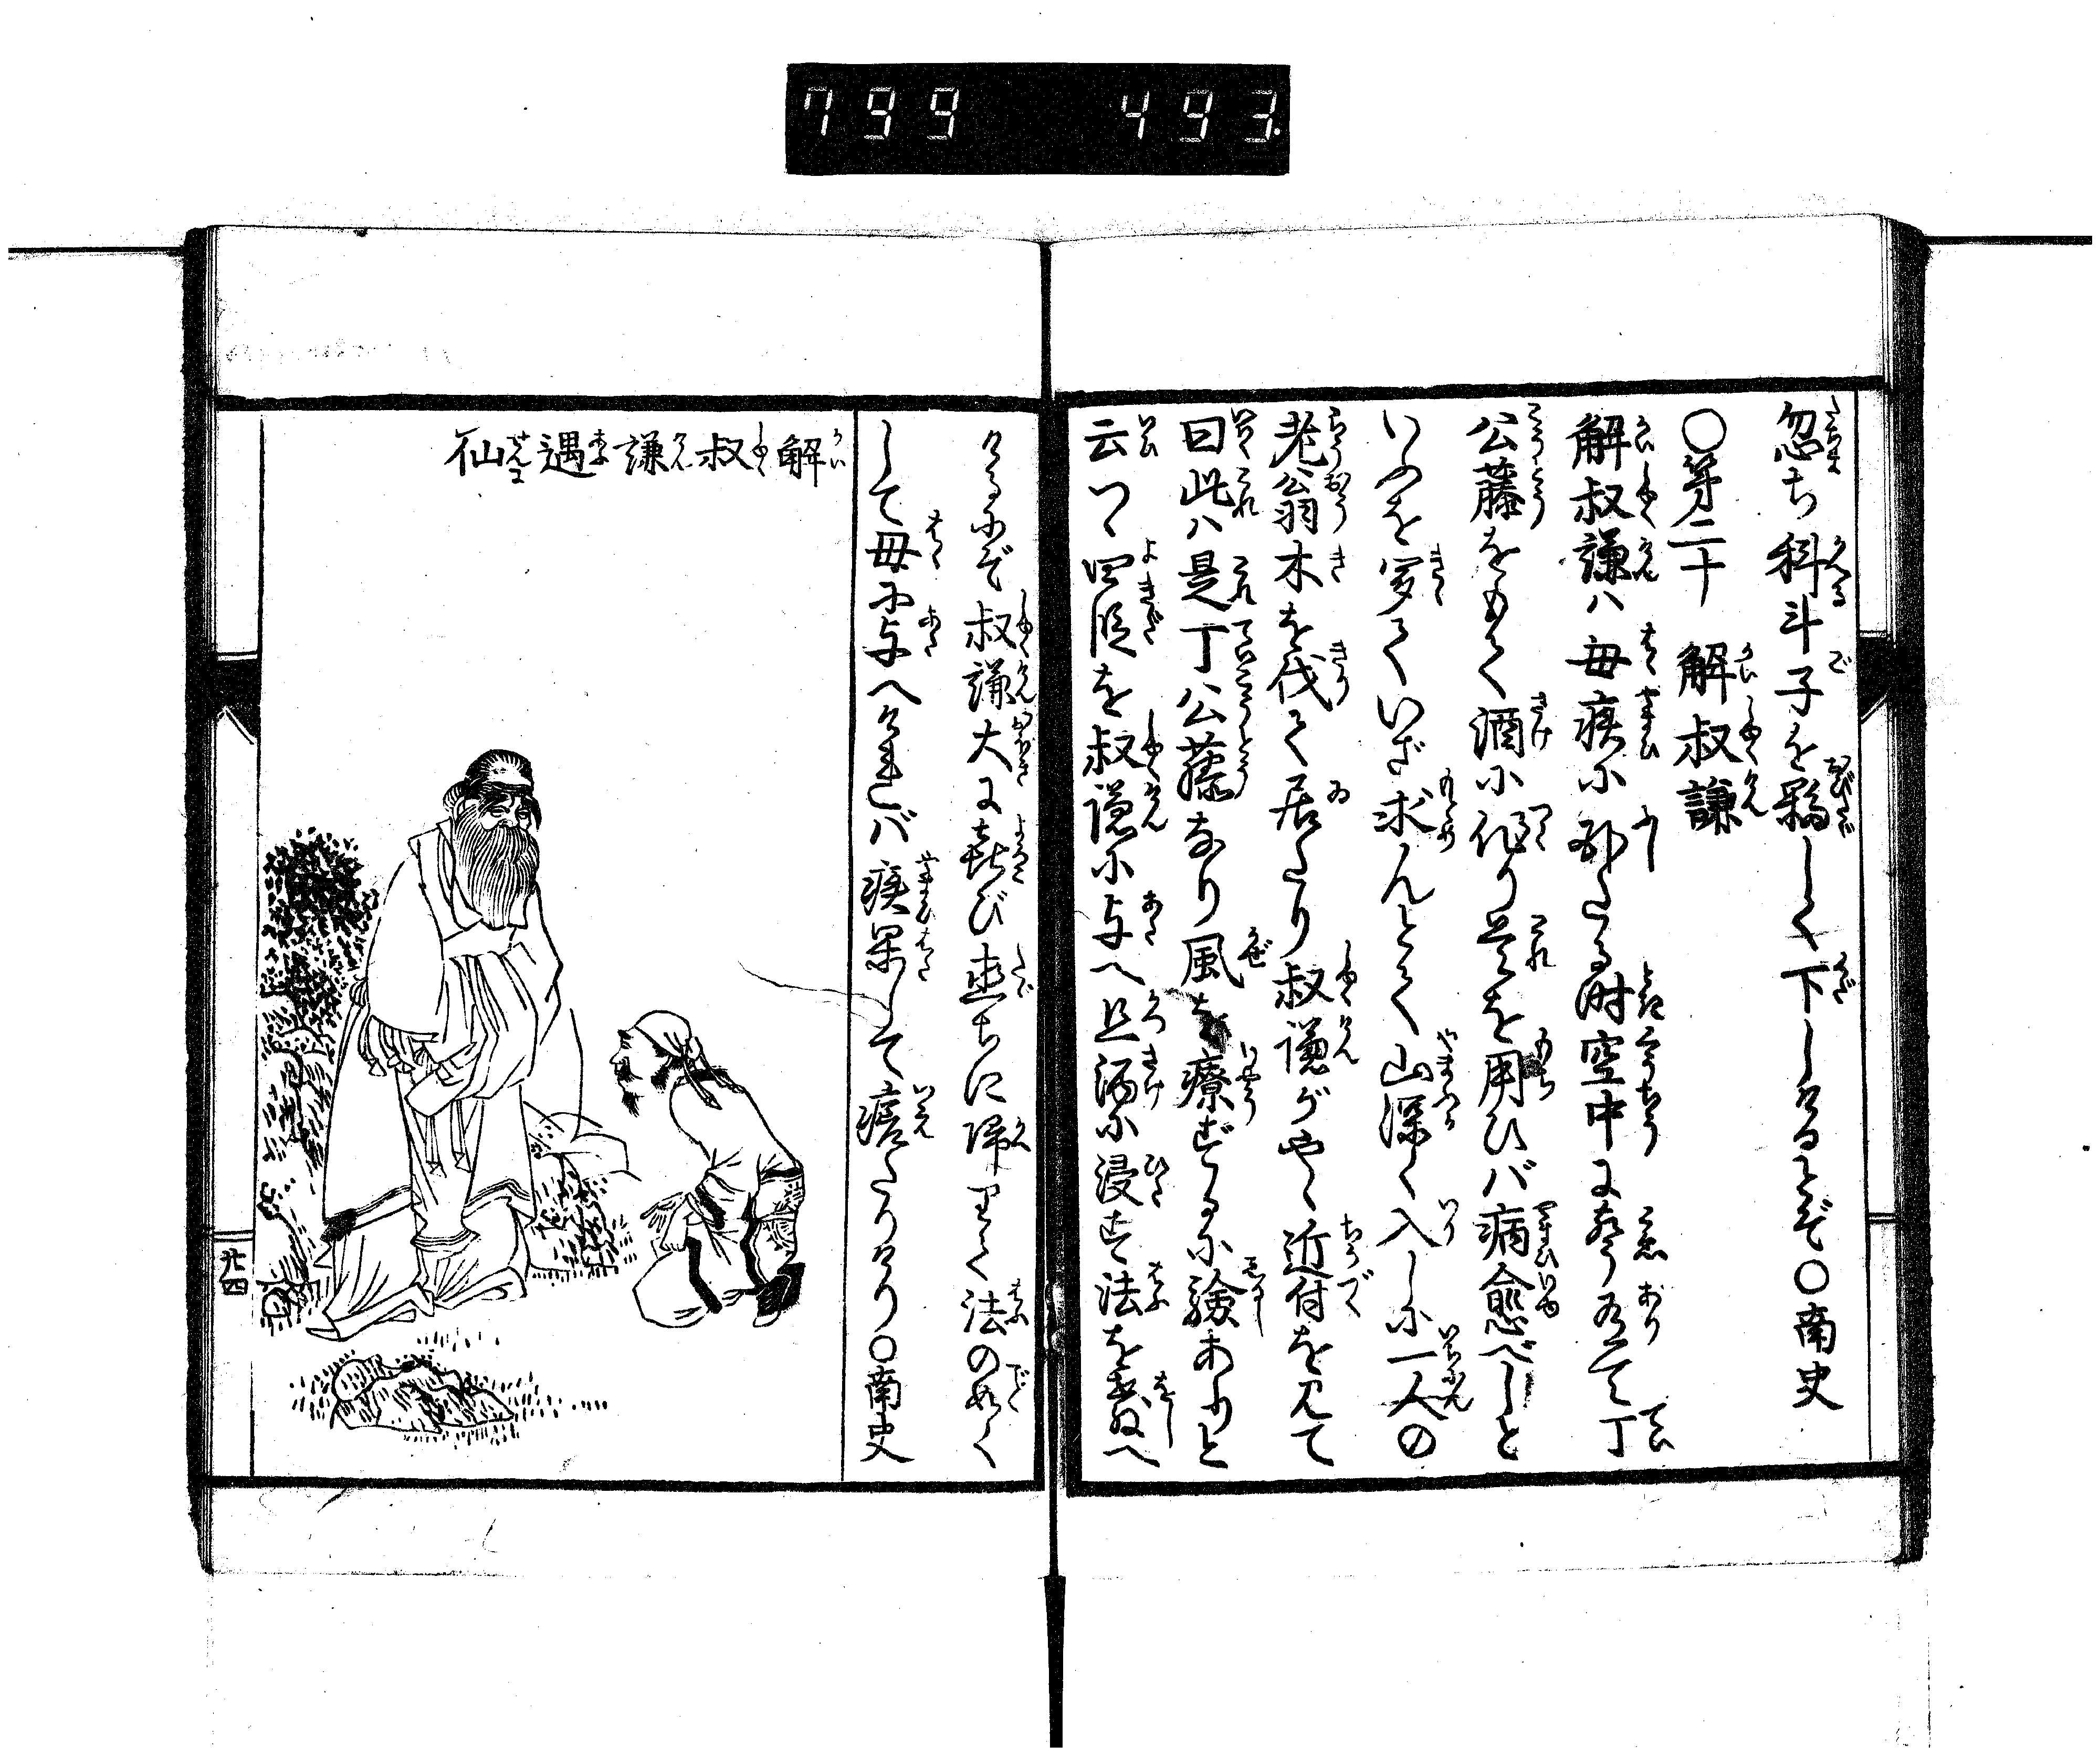 799 493
忽ち科斗子を夥しく下しけるとぞ○南史
○第二十 解叔謙
解叔謙ハ母疾に臥たる時空中に声有て丁
公藤をもて酒に作り是を用ひバ病愈べしと
いふを聞ていざ求んとて山深く入しに一人の
老翁木を伐て居たり叔謙がやゝ近付を見て
曰此ハ是丁公藤なり風を療ずるに験ありと
云つゝ四段を叔謙に与へ且酒に浸す法を教へ
けるにぞ叔謙大に喜び直ちに帰りて法の如く
して母に与へけれバ疾果して瘥たりけり○南史
解叔謙遇仙
廿四